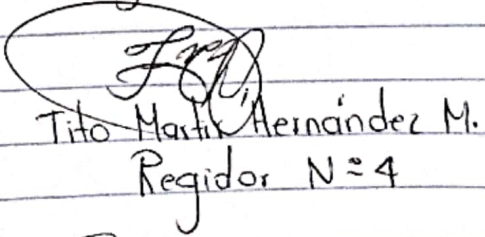 Tito Martín Hernández M.
Regidor N= 4